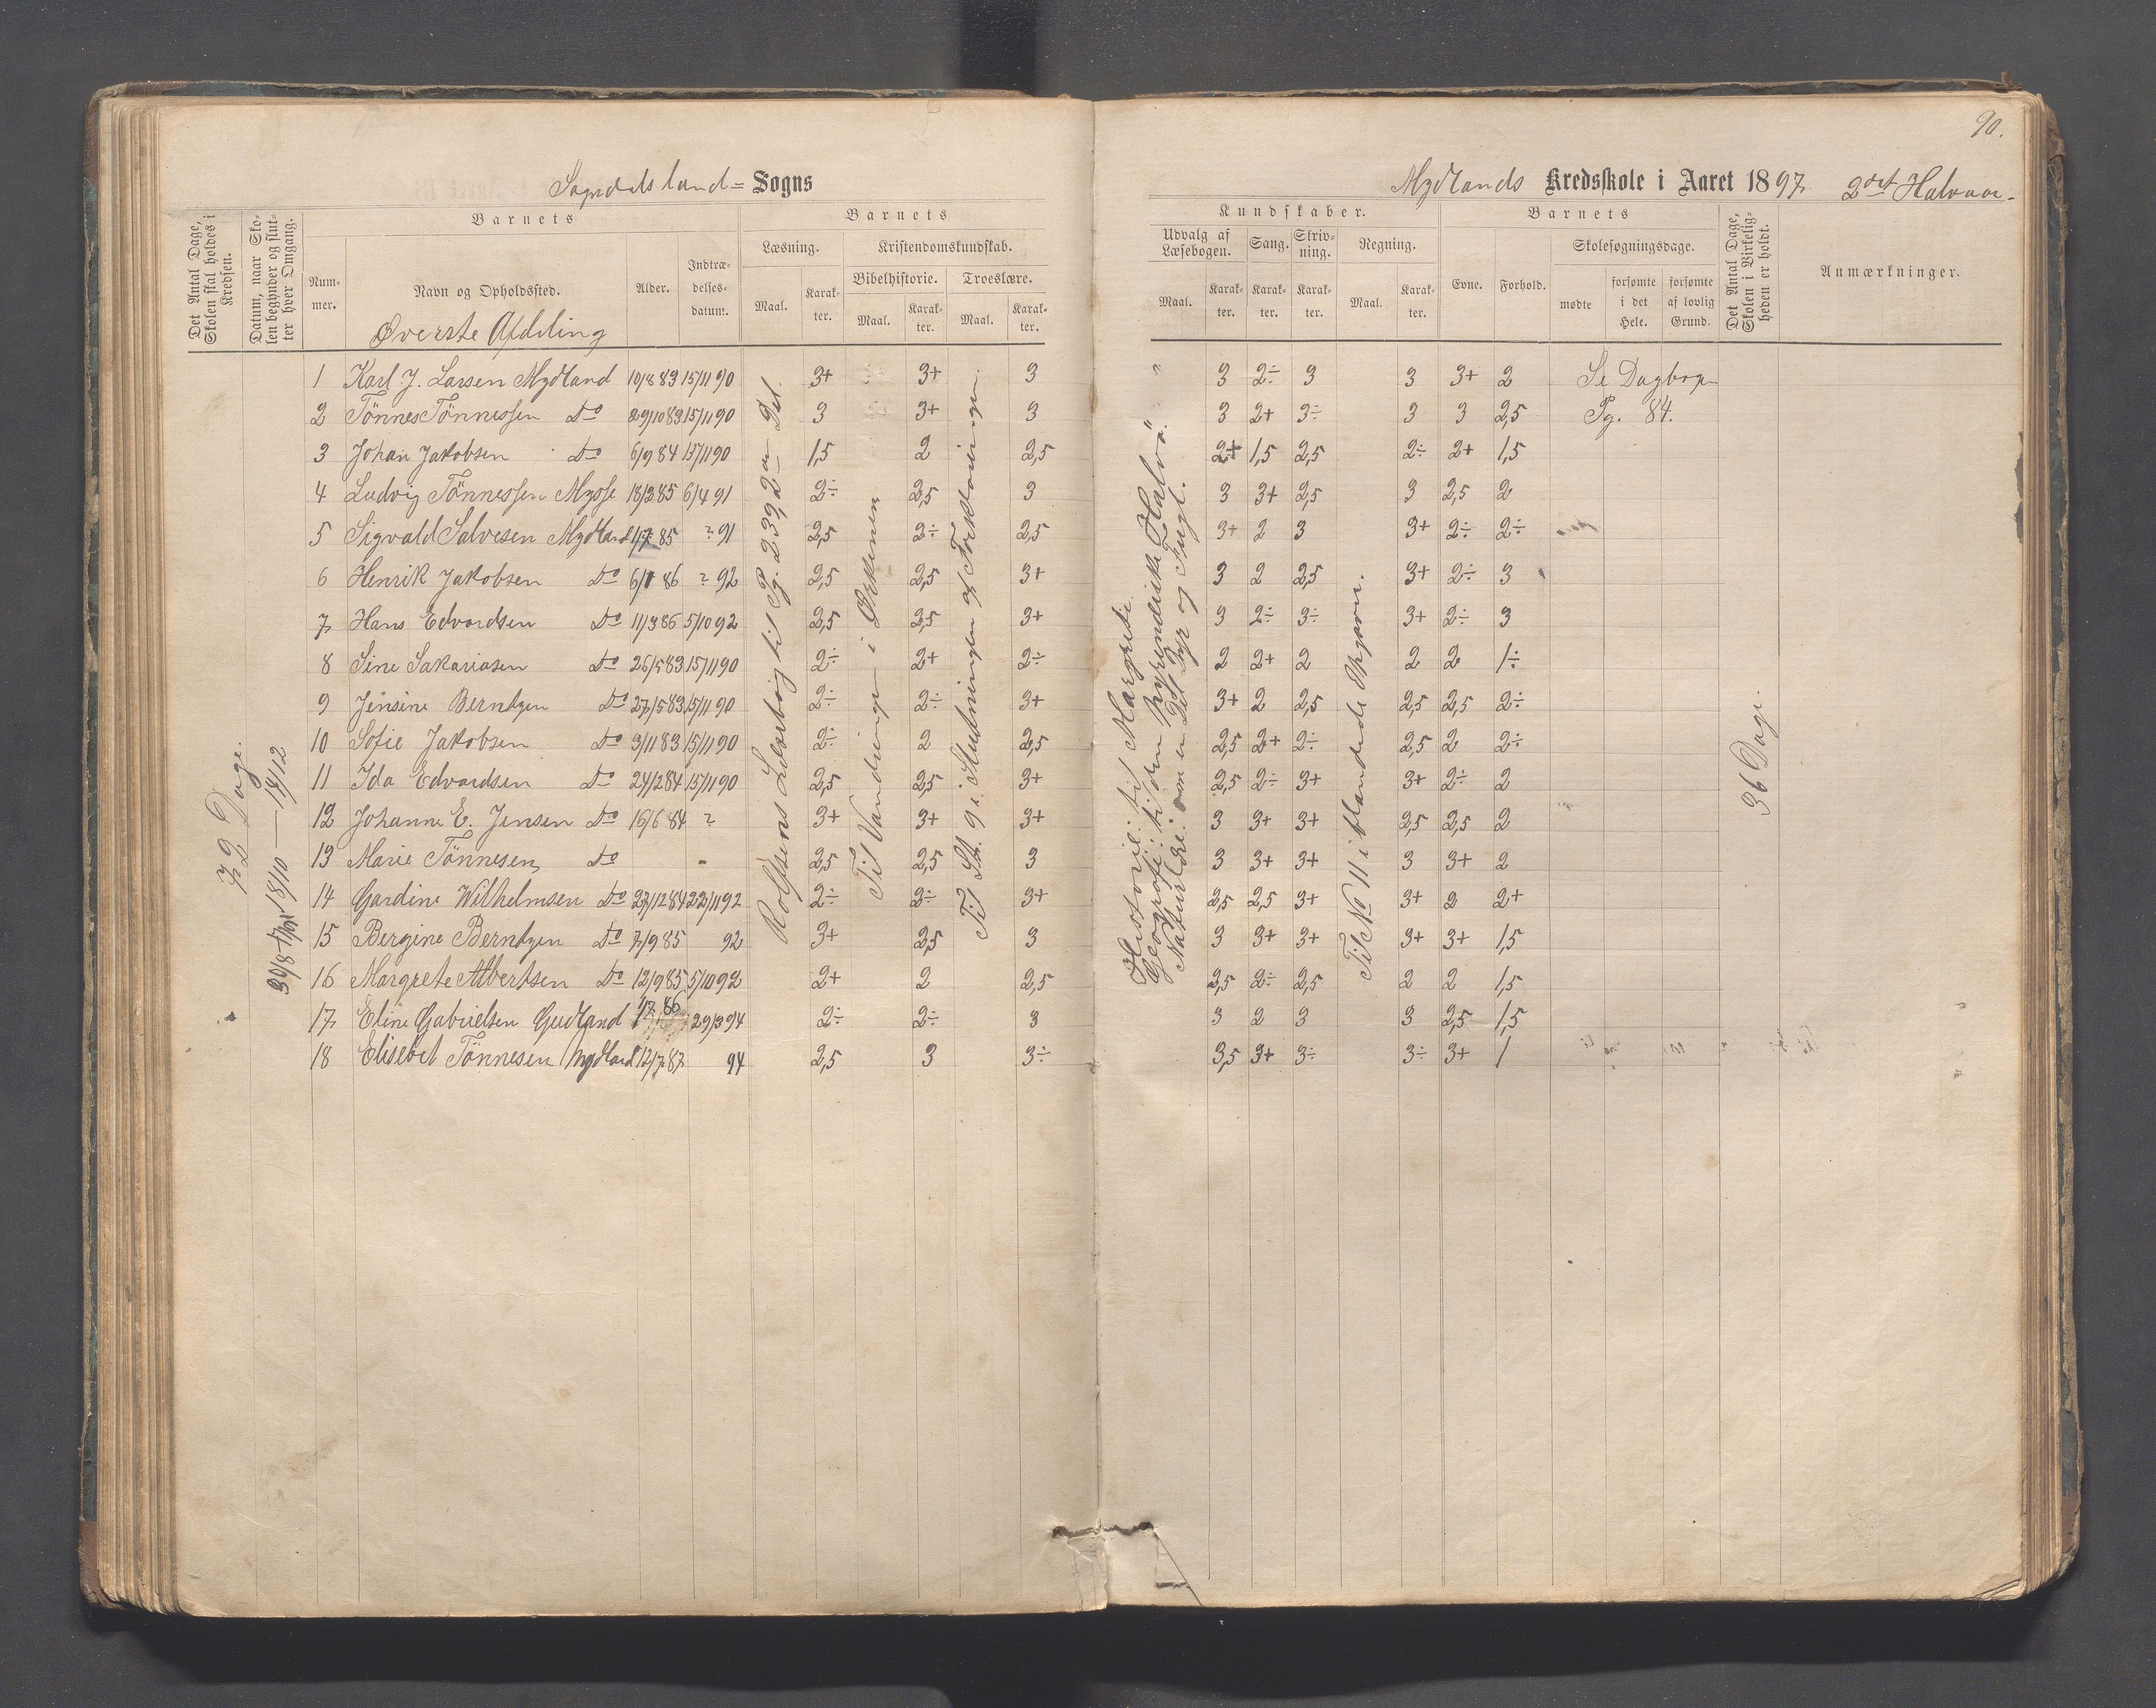 90.
Sogndalsland= Sogns
Mydlands Kredsskole i Aaret 1897. 2det Halvaar.
Det Antal Dage, Skolen skal holdes i Kredsen.
Datum, naar Skolen begynder og slutter hver Omgang.
Barnets
Nummer.
Navn og Opholdssted.
Alder.
Indtrædelsesdatum.
Barnets
Læsning.
Maal.
Karakter.
Kristendomskundskab.
Bibelhistorie.
Maal.
Karakter.
Troeslære.
Maal.
Karakter.
Kundskaber.
Udvalg af Læsebogen.
Maal.
Karakter.
Sang.
Karakter.
Skrivning.
Karakter.
Regning.
Maal.
Karakter.
Barnets
Evne.
Forhold.
Skolesøgningsdage.
mødte
forsømte i det Hele.
forsømte af lovlig Grund.
Det Antal Dage, Skolen i Virkeligheden er holdt.
Anmærkninger.
Øverste Afdeling
1 Karl J. Larsen Mydland 10/8 83 15/11 90 3+ 3+ 3 " 3 2÷ 3 3 3+ 2 Se Dagbogen
2 Tönnes Tönnessen Do 29/10 83 15/11 90 3 3+ 3 3 2+ 3÷ 3 3 2,5 Pg. 84.
3 Johan Jakobsen Do 6/9 84 15/11 90 1,5 2 2,5 2+ 1,5 2,5 2÷ 2+ 1,5
4 Ludvig Tönnessen Mysse 18/3 85 6/4 91 2÷ 2,5 3 3 3+ 2,5 3 2,5 2
5 Sigvald Salvesen Mydland 1/7 85 ? 91 2,5 2÷ 2,5 3+ 2 3 3+ 2÷ 2÷
6 Henrik Jakobsen Do 6/1 86 ? 92 2,5 2,5 3+ 3 2 2,5 3+ 2÷ 3
7 Hans Edvardsen Do 11/3 86 5/10 92 2,5 2,5 3+ 3 2÷ 3÷ 3+ 2÷ 3
8 Sine Sakariasen Do 26/5 83 15/11 90 2÷ 2+ 2÷ 2 2+ 2 2 2 1÷
9 Jensine Berntzen Do 27/5 83 15/11 90 2÷ 2÷ 3+ 3+ 2 2,5 2,5 2,5 2÷
10 Sofie Jakobsen Do 3/11 83 15/11 90 2÷ 2 2,5 2,5 2+ 2÷ 2,5 2 2÷
11 Ida Edvardsen Do 24/2 84 15/11 90 2,5 2,5 3+ 2,5 2÷ 3+ 3+ 2÷ 2
12 Johanne E. Jensen Do 16/6 84 ? 3+ 3+ 3+ 3 3+ 3+ 2,5 2,5 2
13 Marie Tönnesen Do - 2,5 2,5 3 3 3+ 3+ 3 3+ 2
14 Gardine Wilhelmsen Do 27/12 84 22/11 92 2÷ 2÷ 3+ 2,5 2,5 3+ 3+ 2 2+
15 Bergine Berntzen Do 7/9 85 92 3+ 2,5 3 3 3+ 3+ 3+ 3+ 1,5
16 Margrete Albertsen Do 12/9 85 5/10 92 2+ 2 2,5 2,5 2÷ 2,5 2 2 1,5
17 Eline Gabrielsen Gudland 1/7 86 29/3 94 2÷ 2÷ 3 3 2 3 3 2,5 1,5
18 Elisebet Tönnesen Mydland 12/7 87 94 2,5 3 3÷ 3,5 3+ 3÷ 3÷ 3+ 1
72 Dage.
18/10 — 14/12
Rolfsens Læsebog til Pg. 239, 2den Del.
Til Vandringen i Ørkenen
Til St. 9 i Slutningen af Forklaringen.
Historie: til Margrete
Geografi: til den pyrenæiske Halvö.
Naturlære: om en Del Dyr og Fugl.
Til No 11 i blandede Opgaver.
36 Dage.